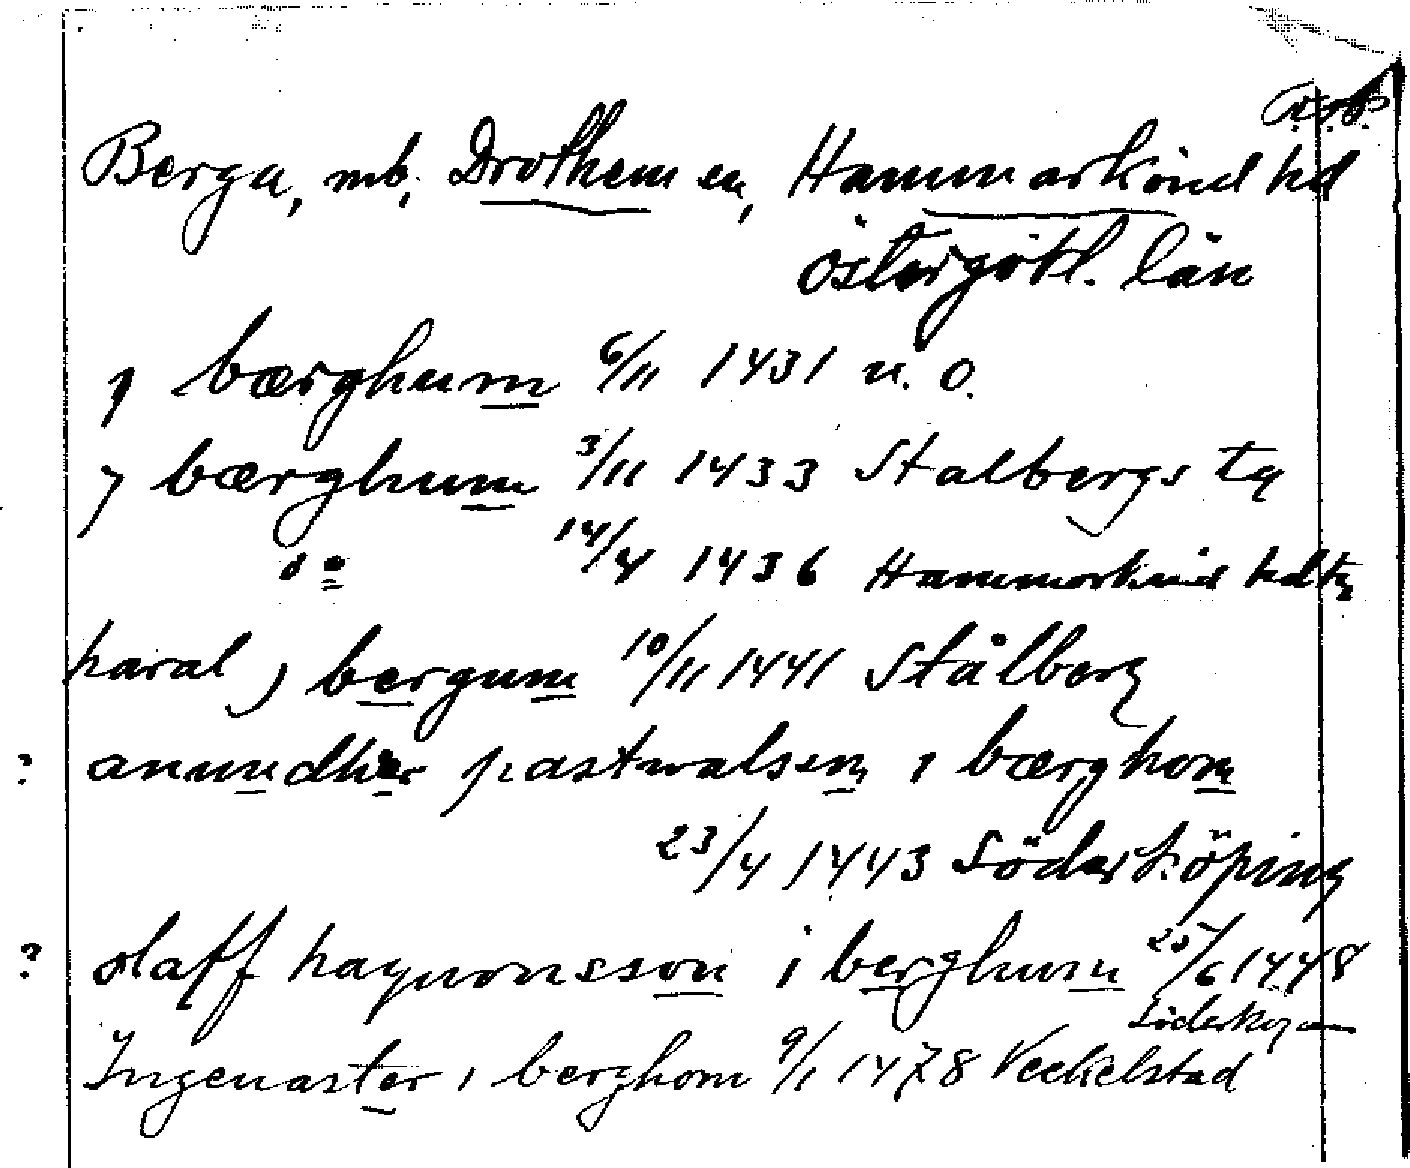 Berga, mb, Drothem sn, Hammarkind hd
Östergötl. län
j bærghum 6/11 1431 u. o.
j bærghum 3/11 1433 Stalbergs tg
do 14/4 1436 Hammarkind hdtg
haral j bergum 10/11 1441 Stålberg
? anundher pastwalsen i bærghom
23/4 1443 Söderköping
? olaff haquonsson i berghum 25/6 1448
Söderkop
Ingeuaster i berghom 9/1 1478 Veckelstad